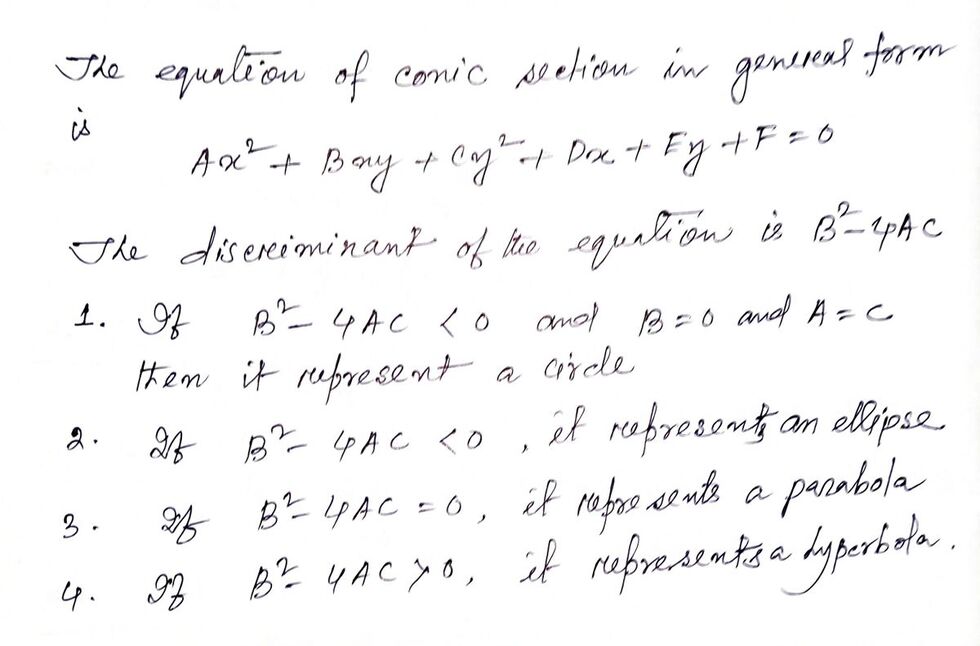 The equation of conic section in general form
is
Ax² + Bxy + Cy² + Dx + Ey + F = 0
The discriminant of the equation is B² - 4AC
1. If B² - 4AC < 0 and B = 0 and A = C
then it represent a circle
2. If B² - 4AC < 0 , it represents an ellipse
3. If B² - 4AC = 0, it represents a parabola
4. If B² - 4AC > 0, it represents a hyperbola.